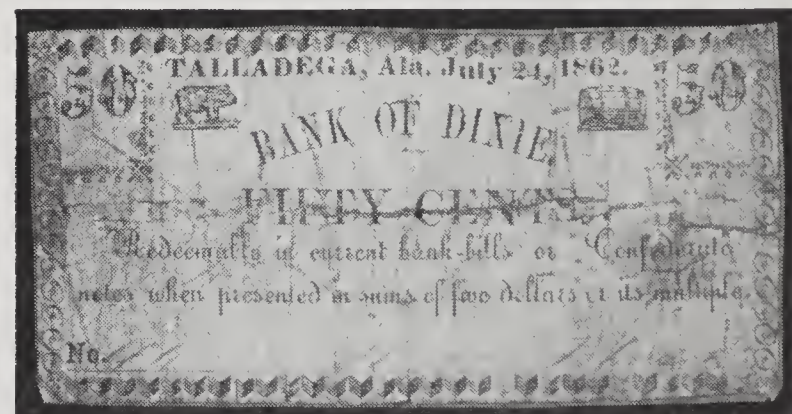 50 TALLADEGA, Ala. July 24, 1862. 50
BANK OF DIXIE
FIFTY CENTS
Redeemable in current bank-bills or Confederate
notes when presented in sums of two dollars or its multiple.
No.